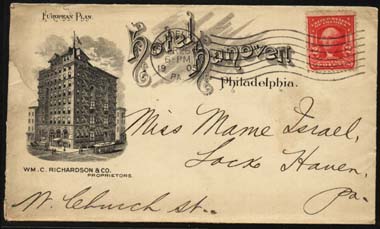 EUROPEAN PLAN.
Hotel Hanover
Philadelphia.
6-PM
19
PA.
WM. C. RICHARDSON & CO.
PROPRIETORS.
Miss Mame Israel,
Lock Haven,
Pa.
W. Church st.